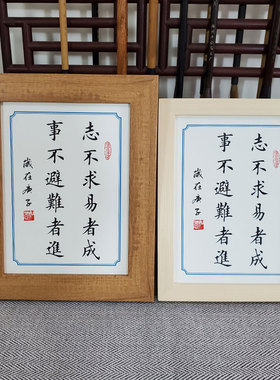 志不求易者成
事不避難者進
歲在庚子
志不求易者成
事不避難者進
歲在庚子